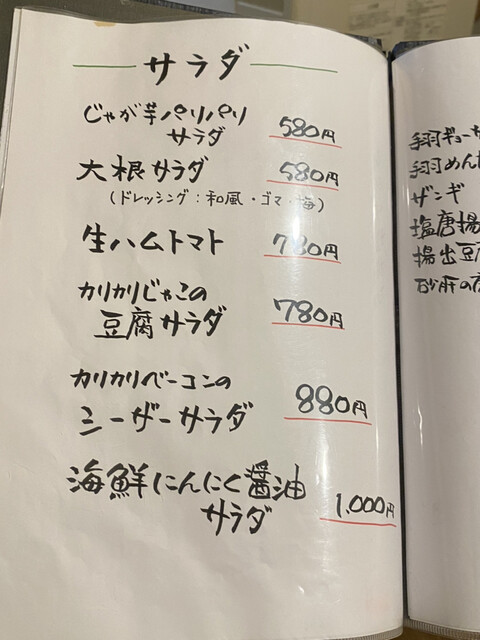 サラダ
じゃが芋パリパリ
サラダ 580円
大根サラダ 580円
(ドレッシング:和風・ゴマ・梅)
生ハムトマト 780円
カリカリじゃこの
豆腐サラダ 780円
カリカリベーコンの
シーザーサラダ 880円
海鮮にんにく醤油
サラダ 1.000円
手羽ギョーザ
手羽めん
ザンギ
塩唐揚
揚出豆腐
砂肝の